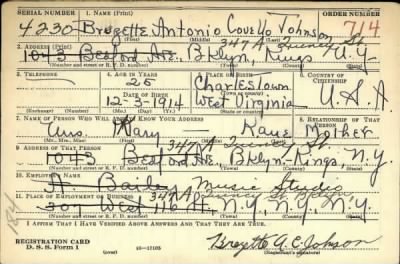 SERIAL NUMBER 1. NAME (Print) ORDER NUMBER
4230 Brezette Antonio Covello Johnson 714
(First) (Middle) (Last)
347 A Quincy St.
2. ADDRESS (Print)
1043 Bedford Ave. Bklyn, Kings N.Y.
(Number and street or R. F. D. number) (Town) (County) (State)
3. TELEPHONE 4. AGE IN YEARS 5. PLACE OF BIRTH 6. COUNTRY OF CITIZENSHIP
25 Charlestown
DATE OF BIRTH (Town or county)
12-3-1914 West Virginia U.S.A
(Exchange) (Number) (Mo.) (Day) (Yr.) (State or country)
7. NAME OF PERSON WHO WILL ALWAYS KNOW YOUR ADDRESS 8. RELATIONSHIP OF THAT PERSON
Mrs. Mary — Kane Mother
(Mr., Mrs., Miss) (First) (Middle) (Last)
347 A Quincy St.
9. ADDRESS OF THAT PERSON
1043 Bedford Ave, Bklyn-Kings, N.Y.
(Number and street or R. F. D. number) (Town) (County) (State)
10. EMPLOYER'S NAME
A. Bailey Music Studio
347 A
11. PLACE OF EMPLOYMENT OR BUSINESS
307 West 116 St, N.Y, N.Y. N.Y.
(Number and street or R. F. D. number) (Town) (County) (State)
I AFFIRM THAT I HAVE VERIFIED ABOVE ANSWERS AND THAT THEY ARE TRUE.
REGISTRATION CARD
D. S. S. Form 1 16—17105
Brezette A. C. Johnson
(Registrant's signature)